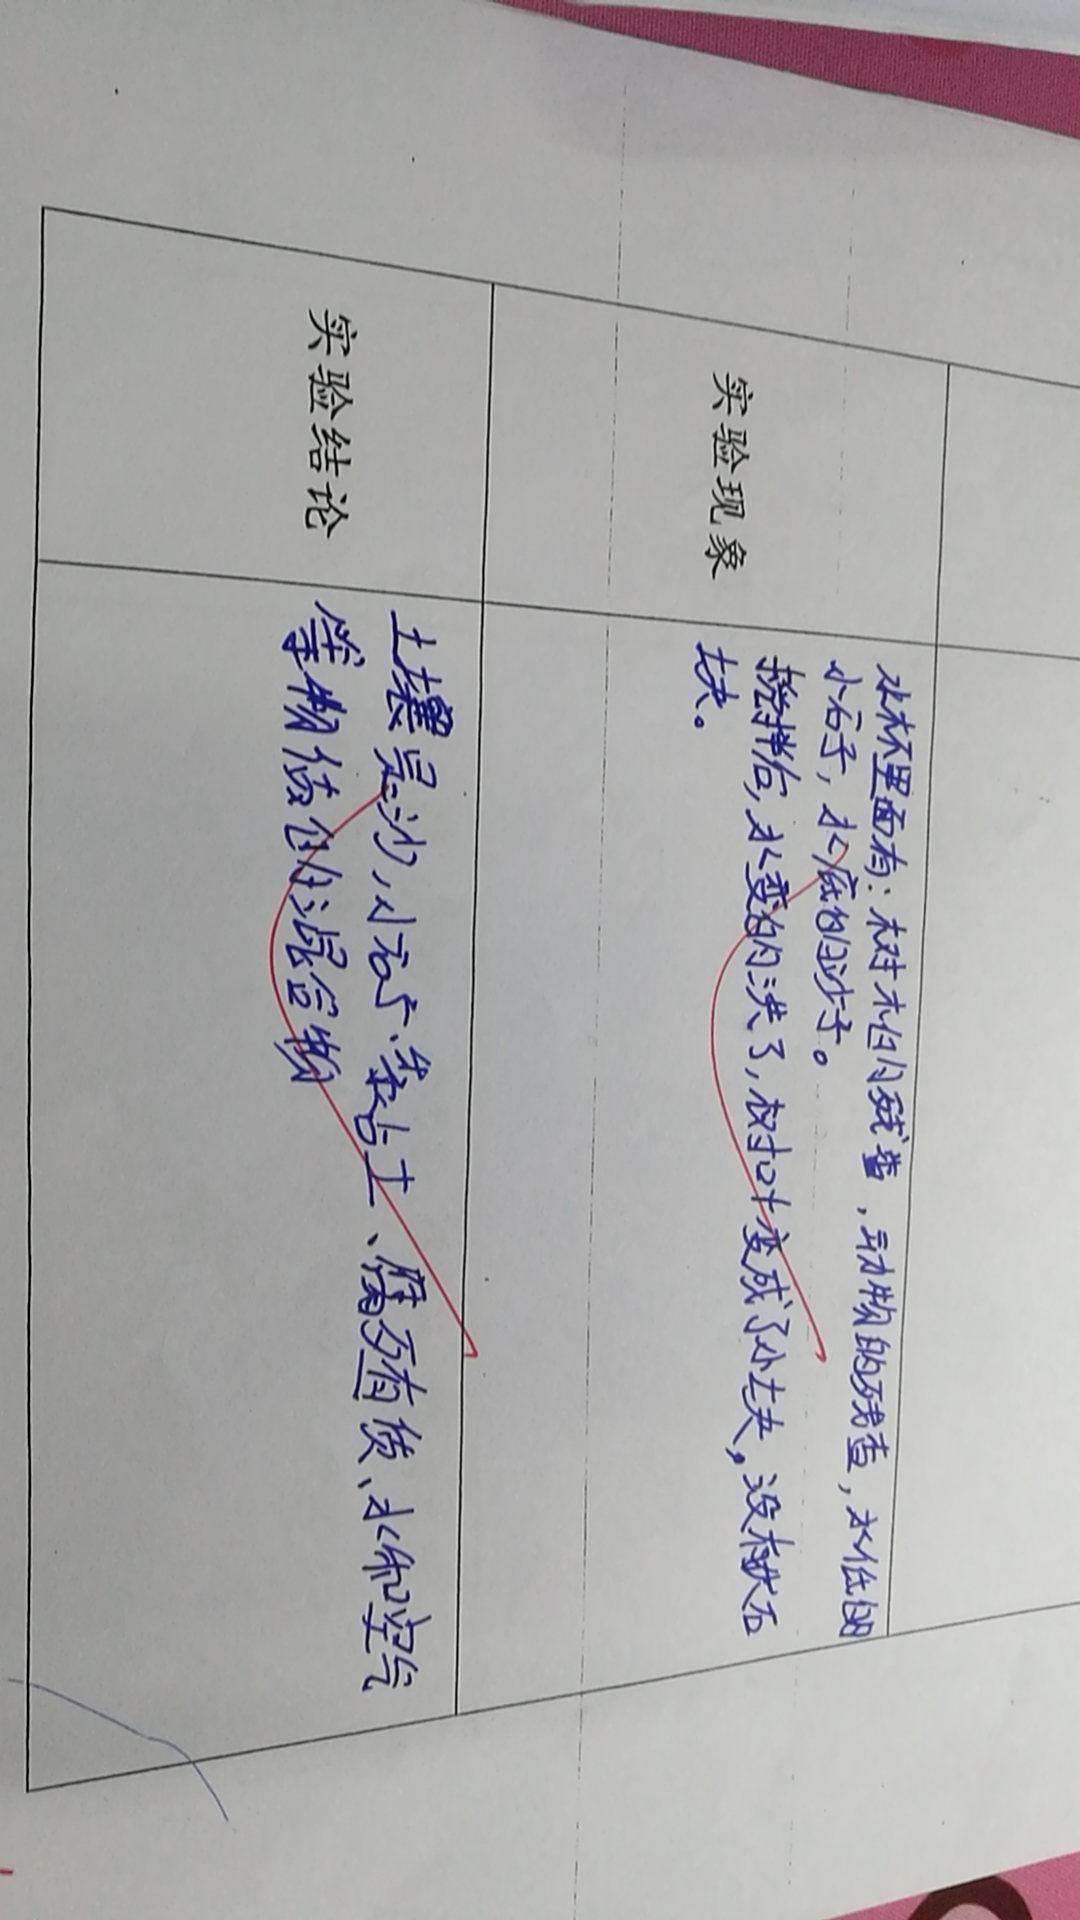 实验现象
水杯里面有：树木的残渣，动物的残查，水位的
小石子，水底的沙子。
搅拌后，水变的洪了，树叶变成了小块，没有大石
块。
实验结论
土壤是沙，小石子、粘土、腐殖质、水和空气
等物质的混合物